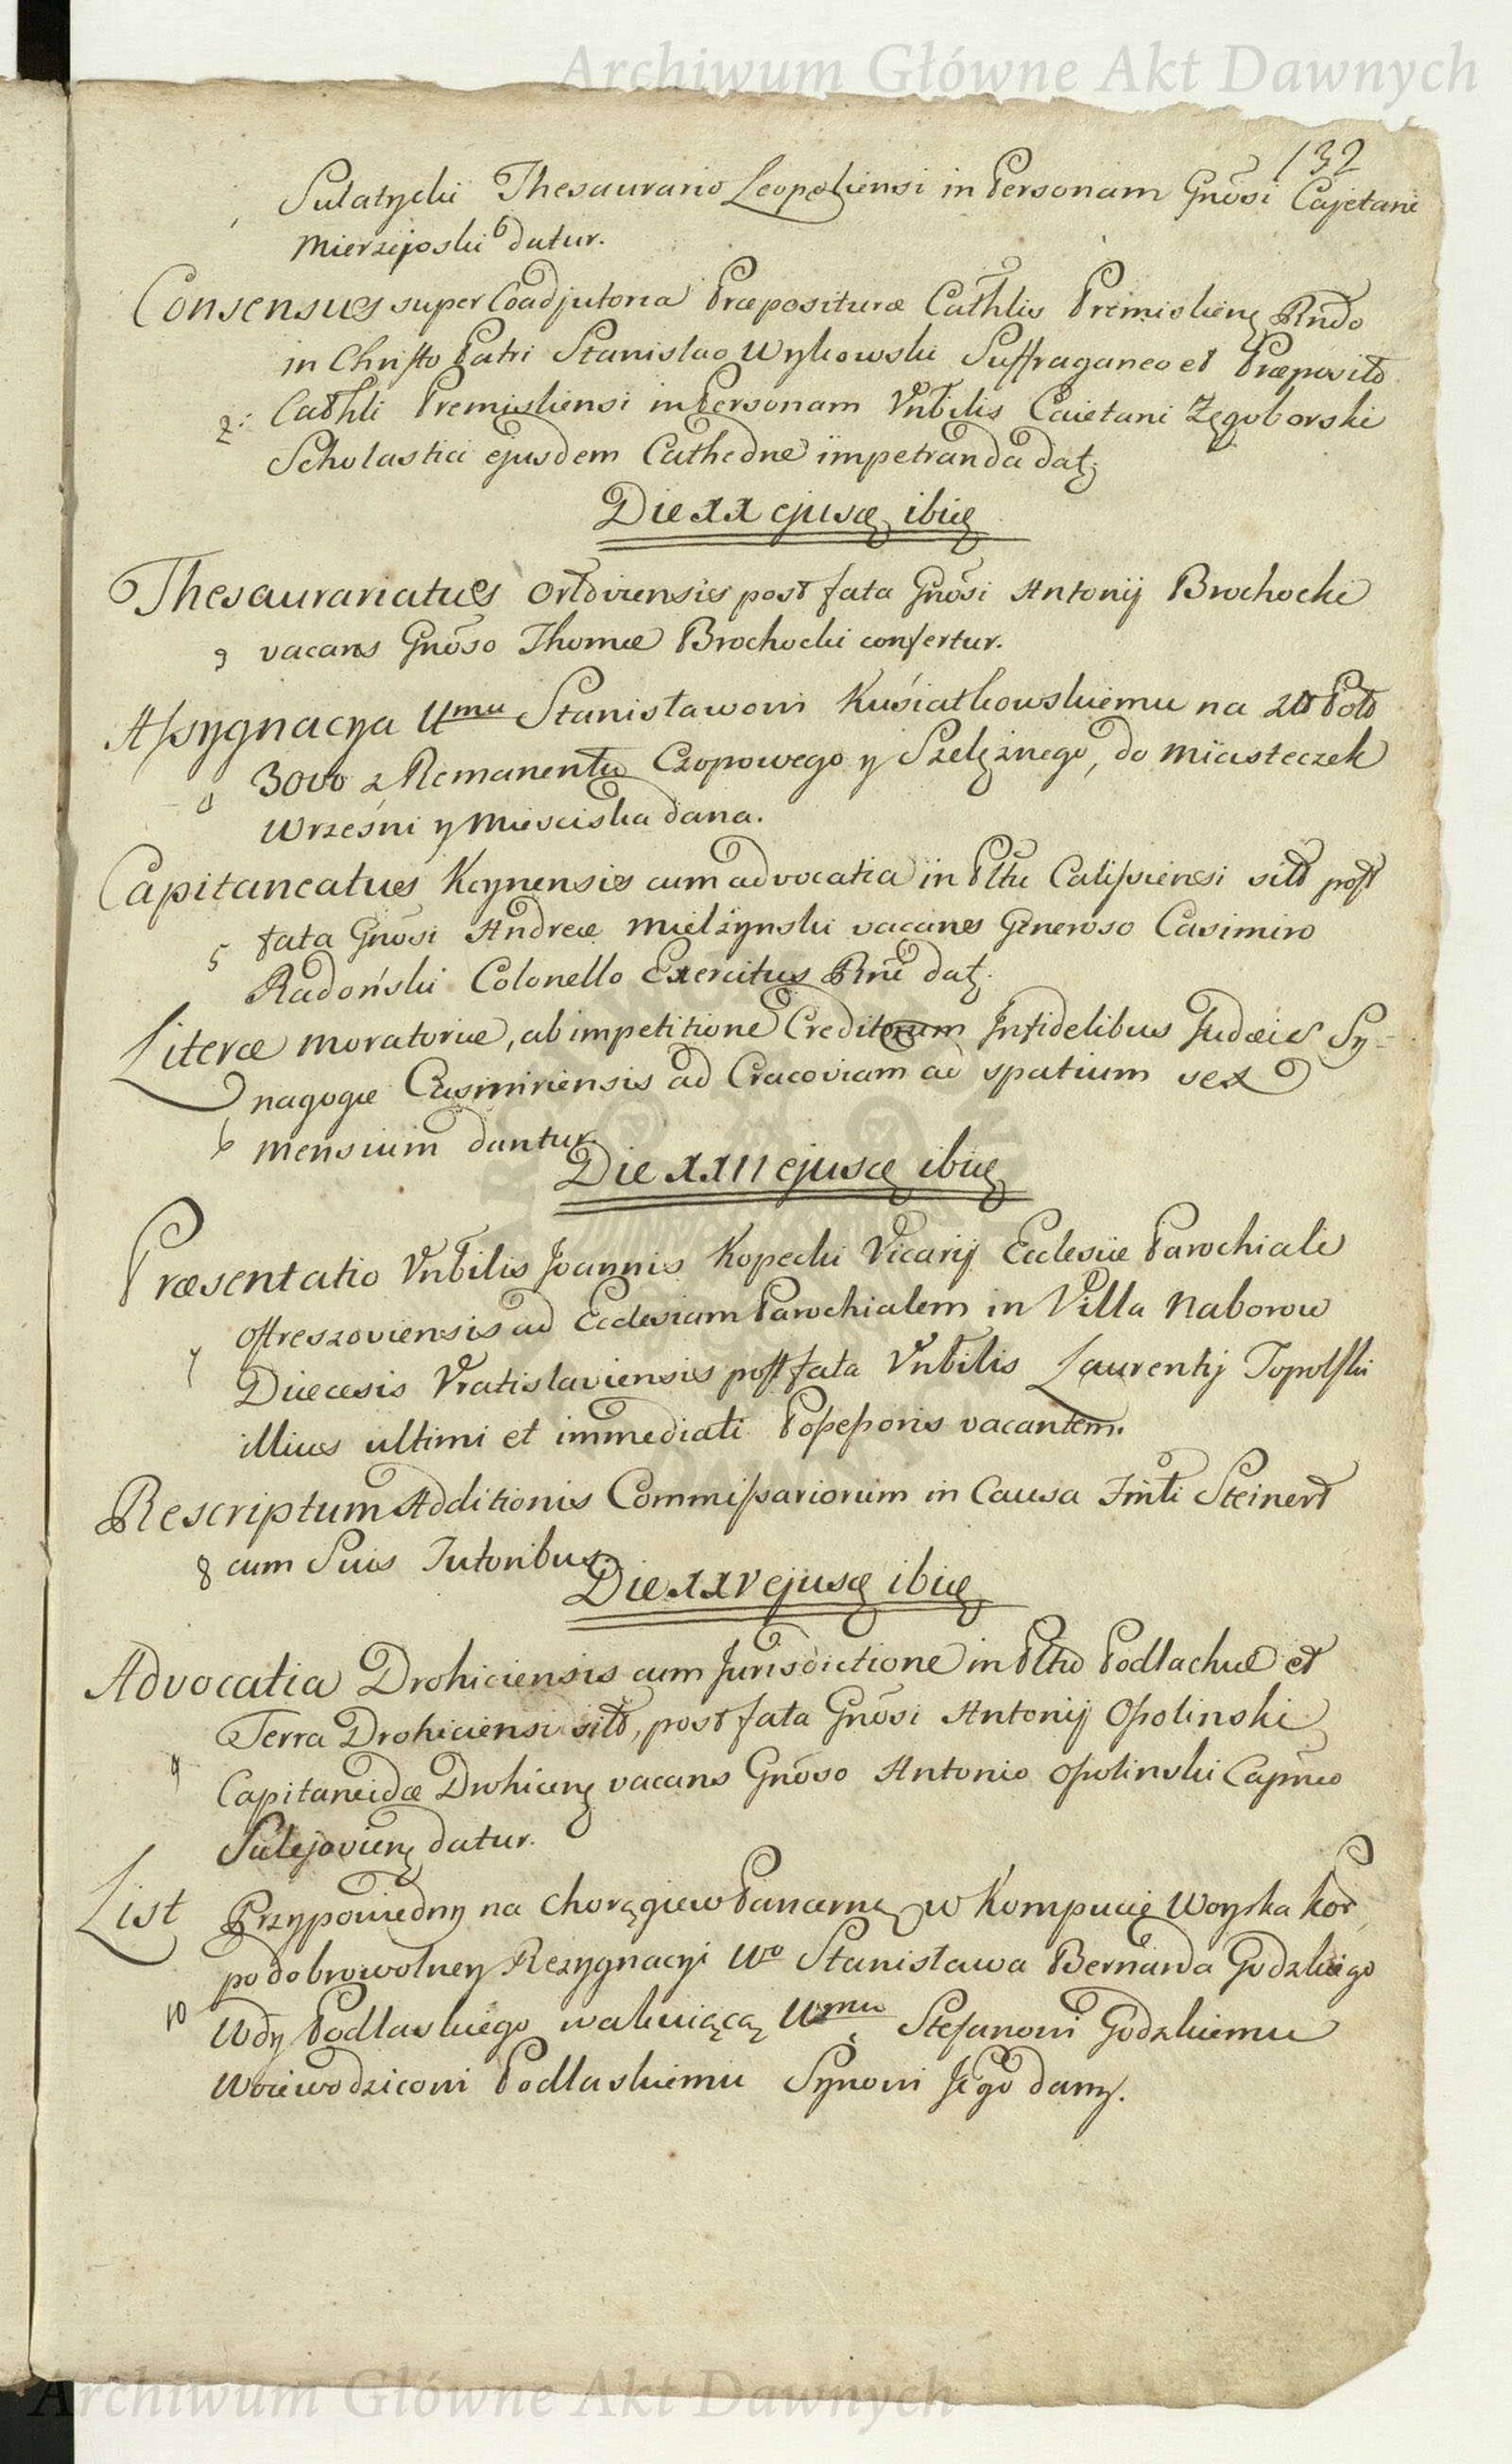 Archiwum Główne Akt Dawnych
132
Sulatycki Thesaurario Leopoliensi in Personam Gnōsi Cajetani
Mierzejoski datur.
Consensus super Coadjutoria Præposituræ Cathlis Premislień Rndo
in Christo Patri Stanislao Wykowski Suffraganeo et Præposito
2: Cathli Premisliensi in Personam Vnbilis Caietani Zęgoborski
Scholastici ejusdem Cathedræ impetranda dat
Die XX ejusđ ibiđ
Thesaurariatus Orłoviensis post fata Gnōsi Antonij Brochocki
3 vacans Gnōso Thomæ Brochocki confertur.
Assygnacya Umu Stanisławowi Kusiatkowskiemu na zło Pols
3000 z Remanentu Czopowego y Szelężnego, do Miasteczek
Wrześni y Miesciska dana.
Capitaneatus Kcynensis cum advocatia in Pltu Calissiensi sito post
5 fata Gnōsi Andreæ Mielżynski vacans Generoso Casimiro
Radoński Colonello Exercitus Rni dat
Literæ moratoriæ, ab impetitione Creditorum Infidelibus Judæis Sy-
nagogæ Casimiriensis ad Cracoviam ad spatium sex
6 mensium dantur.
Die XXII ejusđ ibiđ
Præsentatio Vnbilis Joannis Kopecki Vicarij Ecclesiæ Parochialis
Ostreszoviensis ad Ecclesiam Parochialem in Villa Naborow
7 Diæcesis Vratislaviensis post fata Vnbilis Laurentij Topolski
illius ultimi et immediati Possessoris vacantem.
Rescriptum Additionis Commissariorum in Causa Fmti Steinert
8 cum Suis Tutoribus.
Die XXV ejusđ ibiđ
Advocatia Drohiciensis cum Jurisdictione in Pltu Podlachiæ et
Terra Drohiciensi sito, post fata Gnōsi Antonij Ossolinski
9 Capitaneidæ Drohiceń vacans Gnōso Antonio Ossolinski Capneo
Sulejovień datur.
List Przypowiedny na Chorągiew Pancerną w Kompucie Woyska Kor
po dobrowolney Rezygnacyi Wo Stanisława Bernarda Godzkiego
10 Wdy Podlaskiego wakuiącą Umu Stefanowi Godzkiemu
Woiewodzicowi Podlaskiemu Synowi Jego dany.
Archiwum Główne Akt Dawnych